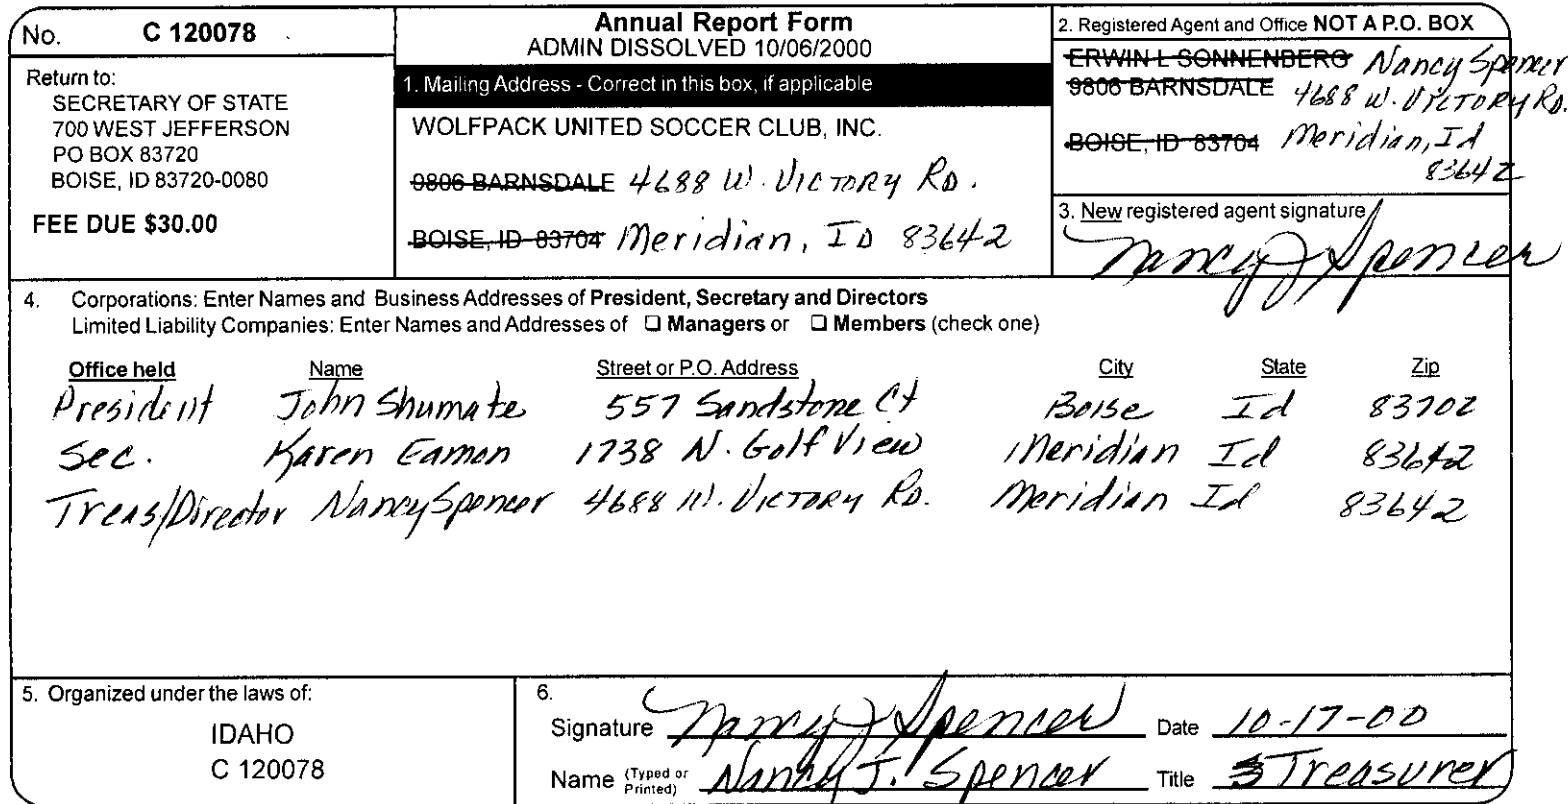 No. C 120078
Return to:
SECRETARY OF STATE
700 WEST JEFFERSON
PO BOX 83720
BOISE, ID 83720-0080
FEE DUE $30.00
Annual Report Form
ADMIN DISSOLVED 10/06/2000
1. Mailing Address - Correct in this box, if applicable
WOLFPACK UNITED SOCCER CLUB, INC.
9806 BARNSDALE 4688 W. VICTORY RD.
BOISE, ID 83704 Meridian, ID 83642
2. Registered Agent and Office NOT A P.O. BOX
ERWIN L SONNENBERG Nancy Spencer
9806 BARNSDALE 4688 W. VICTORY RD.
BOISE, ID 83704 Meridian, Id
83642
3. New registered agent signature
Nancy J Spencer
4. Corporations: Enter Names and Business Addresses of President, Secretary and Directors
Limited Liability Companies: Enter Names and Addresses of ❑ Managers or ❑ Members (check one)
Office held Name Street or P.O. Address City State Zip
President John Shumate 557 Sandstone Ct Boise Id 83702
Sec. Karen Eamon 1738 N. Golf View Meridian Id 83642
Treas/Director Nancy Spencer 4688 W. VICTORY RD. Meridian Id 83642
5. Organized under the laws of:
IDAHO
C 120078
6.
Signature Nancy J Spencer Date 10-17-00
Name (Typed or Printed) Nancy J. Spencer Title Treasurer